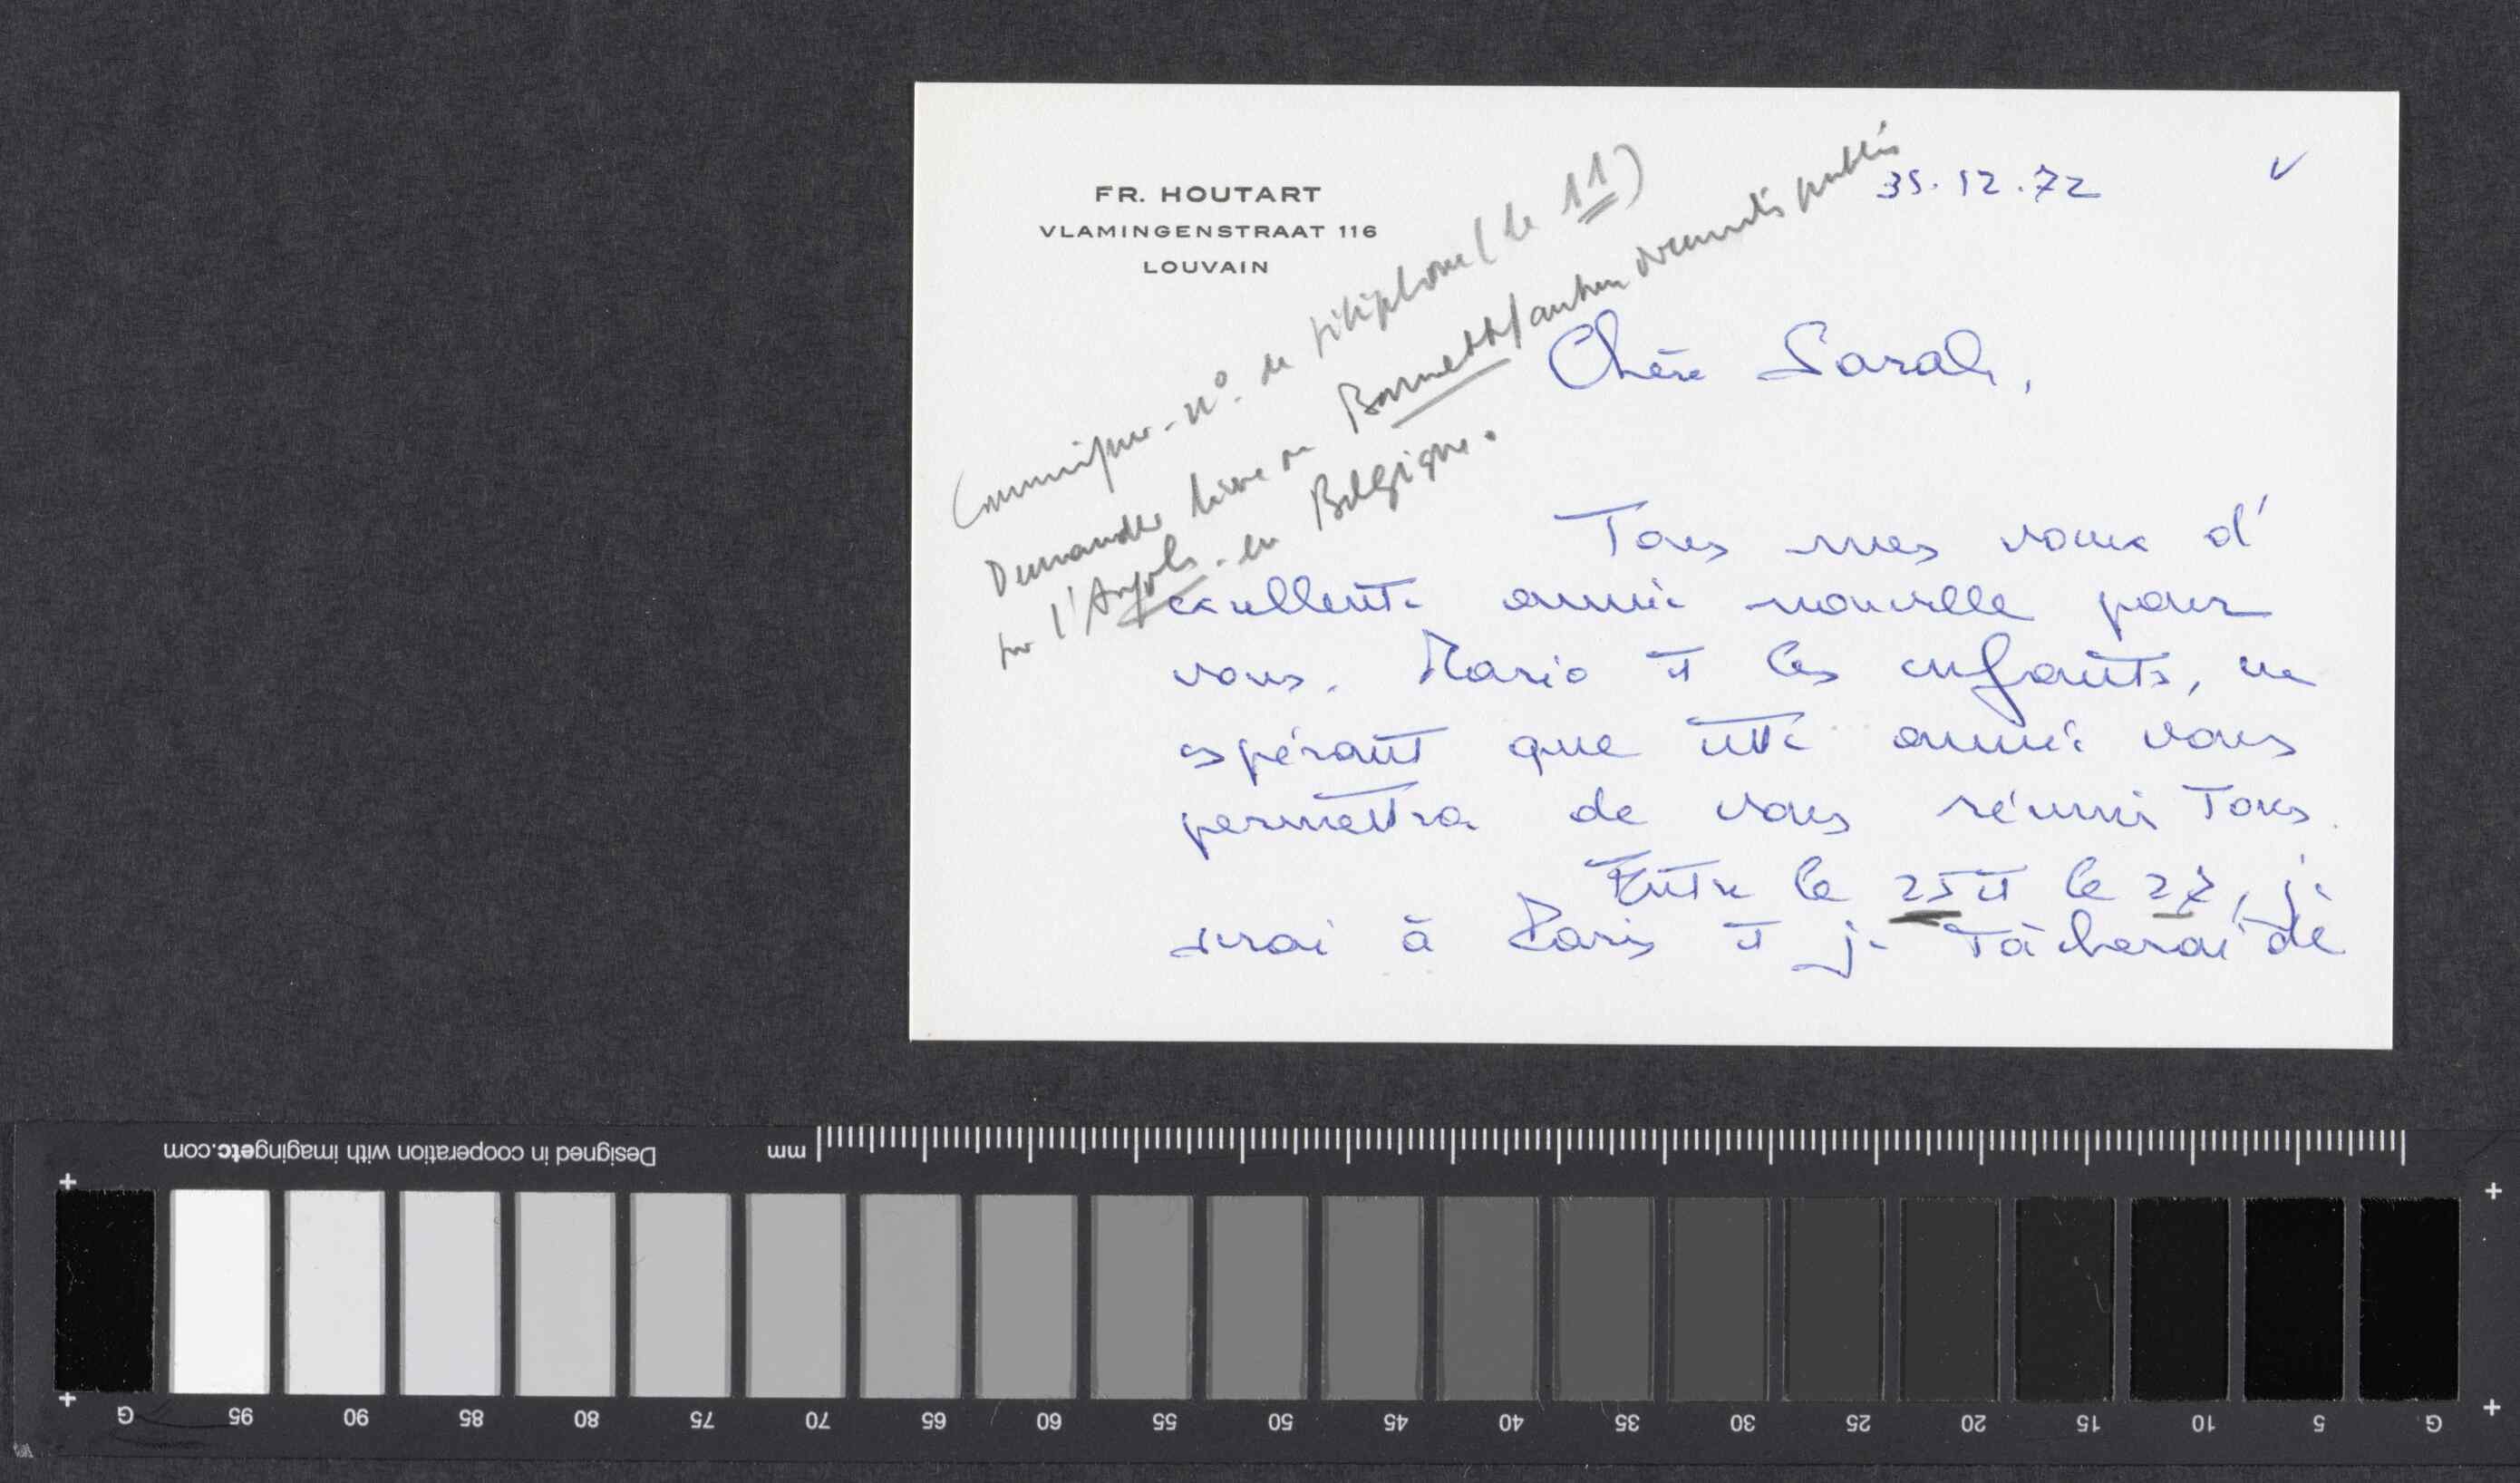 FR. HOUTART
VLAMINGENSTRAAT 116
LOUVAIN
31.12.72
Communiquer - nº. de téléphone (le 11)
Demander livre ou Barnett / autres documents publiés
sur l'Angola - en Belgique.
Chère Sarah,
Tous mes voeux d'
excellente année nouvelle pour
vous, Mario et les enfants, en
espérant que cette année vous
permettra de vous réunir tous.
Entre le 25 et le 27, je
serai à Paris et je tâcherai de
Designed in cooperation with imagingetc.com
mm
G 95 90 85 80 75 70 65 60 55 50 45 40 35 30 25 20 15 10 5 G